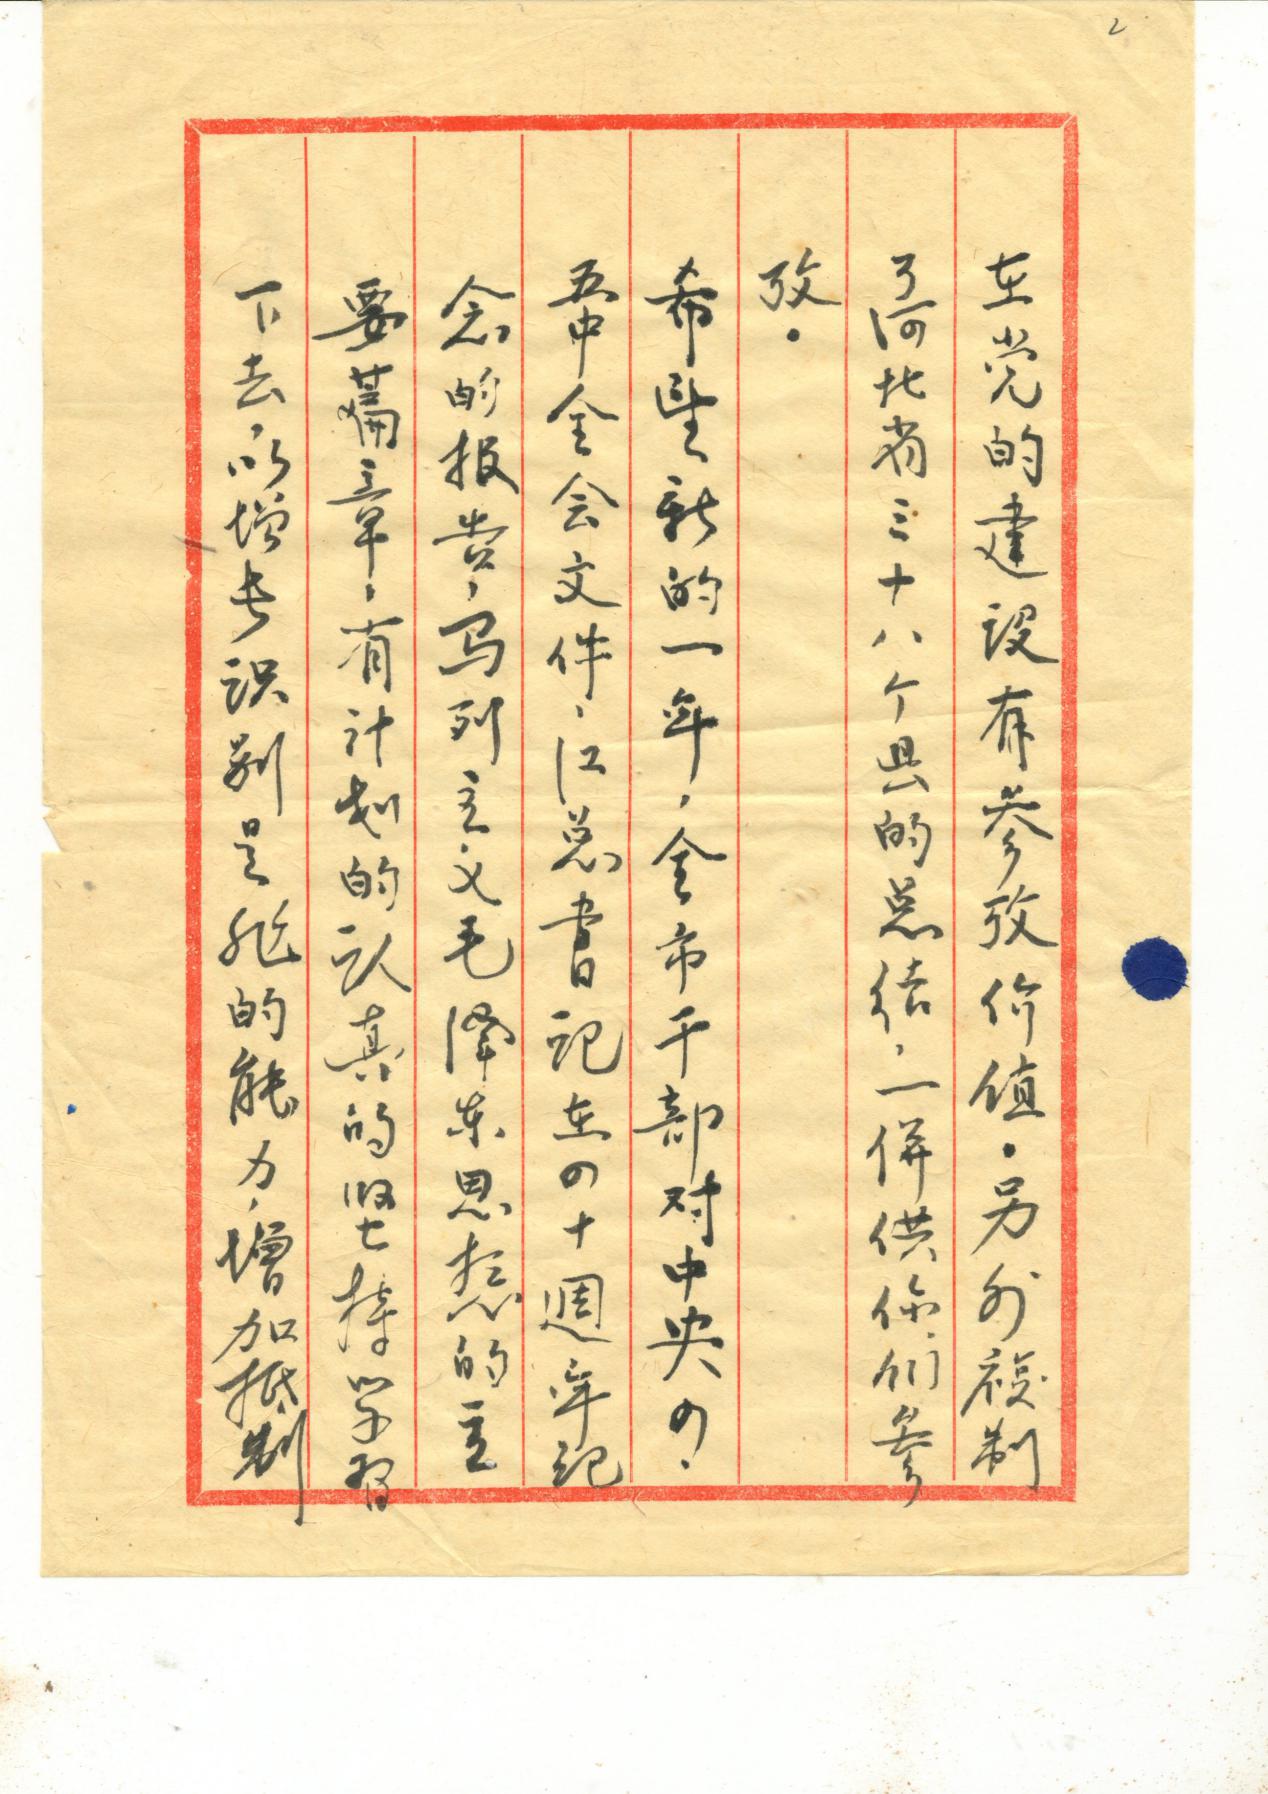 2
在党的建设有参攷价值。另外複制
了河北省三十八个县的总结，一併供你们参
攷。
希望新的一年，全市干部对中央四、
五中全会文件，江总书记在四十週年纪
念的报告，马列主义毛泽东思想的主
要篇章，有计划的认真的坚持学习
下去，以增长识别是非的能力，增加抵制